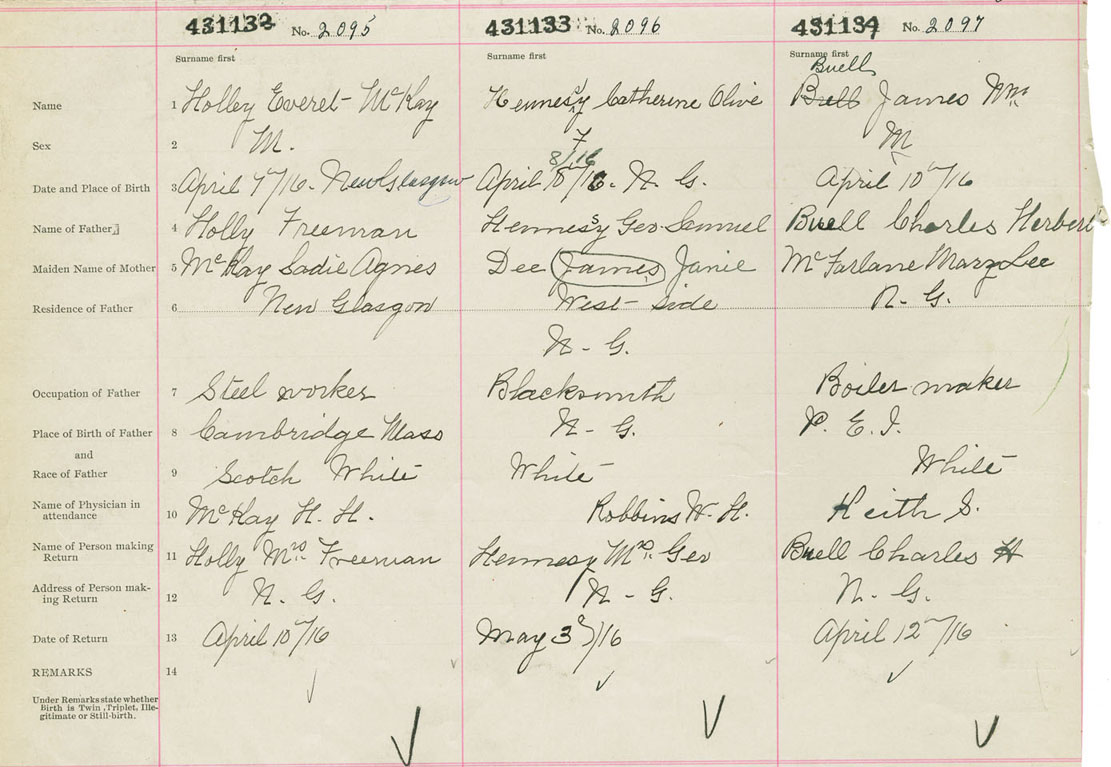 431132 No. 2095 431133 No. 2096 431134 No. 2097
Surname first Surname first Surname first
Buell
Name 1 Holley Everet McKay Hennessy Catherine Olive Buell James Wm
Sex 2 M. F M
8/16
Date and Place of Birth 3 April 7th/16. New Glasgow April /16. N. G. April 10th/16
Name of Father 4 Holly Freeman Hennessy Geo Samuel Buell Charles Herbert
Maiden Name of Mother 5 McKay Sadie Agnes Dee James Janie McFarlane Mary Lee
Residence of Father 6 New Glasgow West side N. G.
N - G.
Occupation of Father 7 Steel worker Blacksmith Boiler maker
Place of Birth of Father 8 Cambridge Mass N - G. P. E. I.
and
Race of Father 9 Scotch White White White
Name of Physician in attendance 10 McKay H. H. Robbins W. H. Keith S.
Name of Person making Return 11 Holly Mrs Freeman Hennesy Mrs Geo Buell Charles H
Address of Person making Return 12 N. G. N - G. N - G.
Date of Return 13 April 10th/16 May 3rd/16 April 12th/16
REMARKS 14
Under Remarks state whether
Birth is Twin, Triplet, Ille-
gitimate or Still-birth.